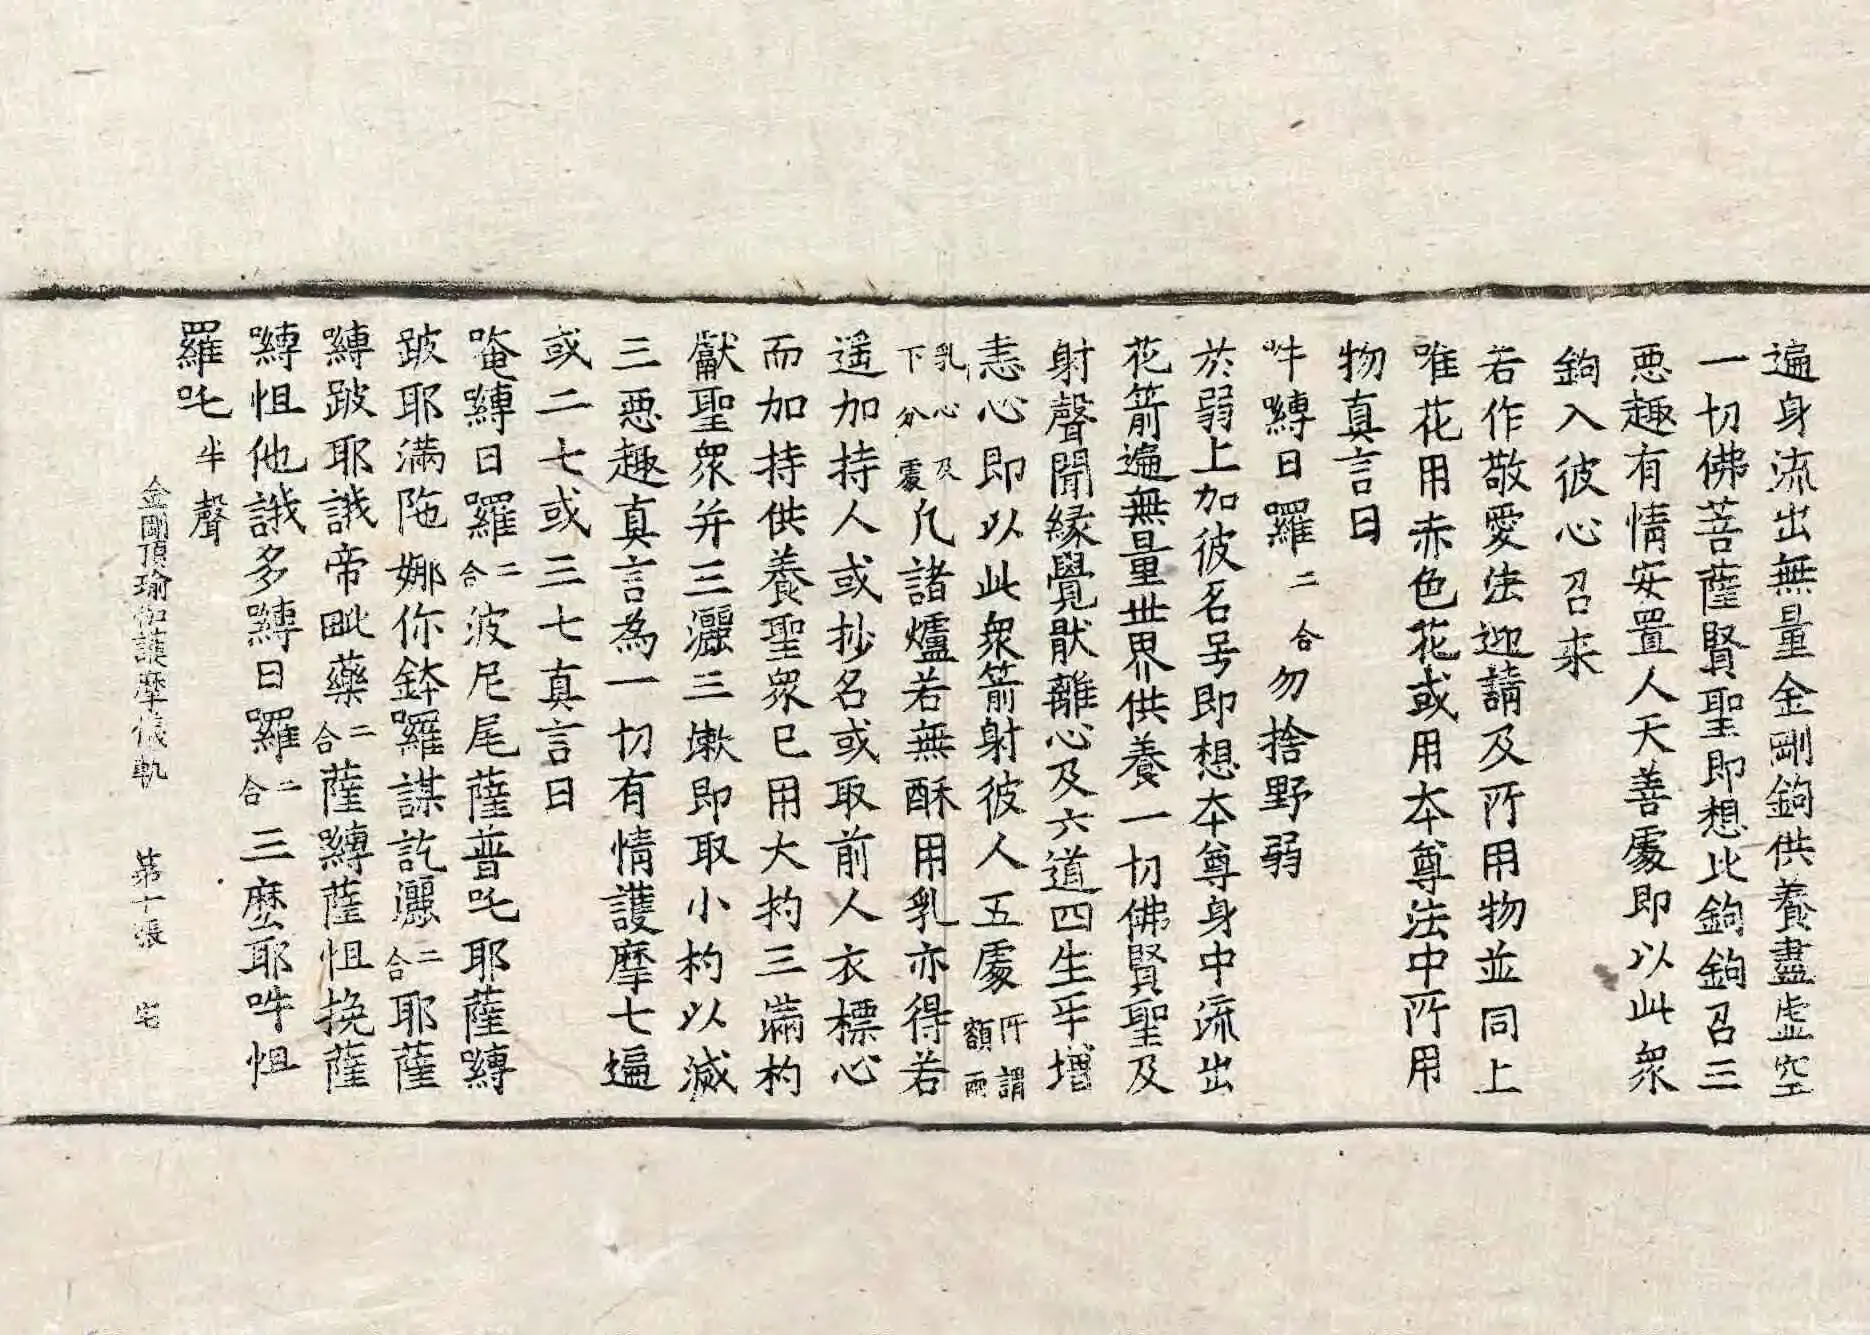 遍身流出無量金剛鉤供養盡虛空
一切佛菩薩賢聖即想比鉤鉤召三
惡趣有情安置人天善處即以此衆
鉤入彼心召来
若作敬愛法迎請及所用物並同上
唯花用赤色花或用本尊法中所用
物真言曰
吽嚩日羅二合勿捨野弱
於弱上加彼名号即想本尊身中流出
花箭遍無量世界供養一切佛賢聖及
射聲聞緣覺猒離心及六道四生平增
恚心即以此衆箭射彼人五處所謂額兩
乳心及下分處凡諸爐若無酥用乳亦得若
遥加持人或抄名或取前人衣標心
而加持供養聖衆已用大杓三滿杓
獻聖衆并三灑三漱即取小杓以滅
三惡趣真言為一切有情護摩七遍
或二七或三七真言曰
唵嚩日羅二合波尼尾薩普吒耶薩嚩
跛耶滿陁娜你鉢羅謀訖灑二合耶薩
嚩跛耶誐帝毗藥二合薩嚩薩怛挽薩
嚩怛他誐多嚩日羅二合三麽耶吽怛
羅吒半聲
金剛頂瑜伽護摩儀軌 第十張 宅